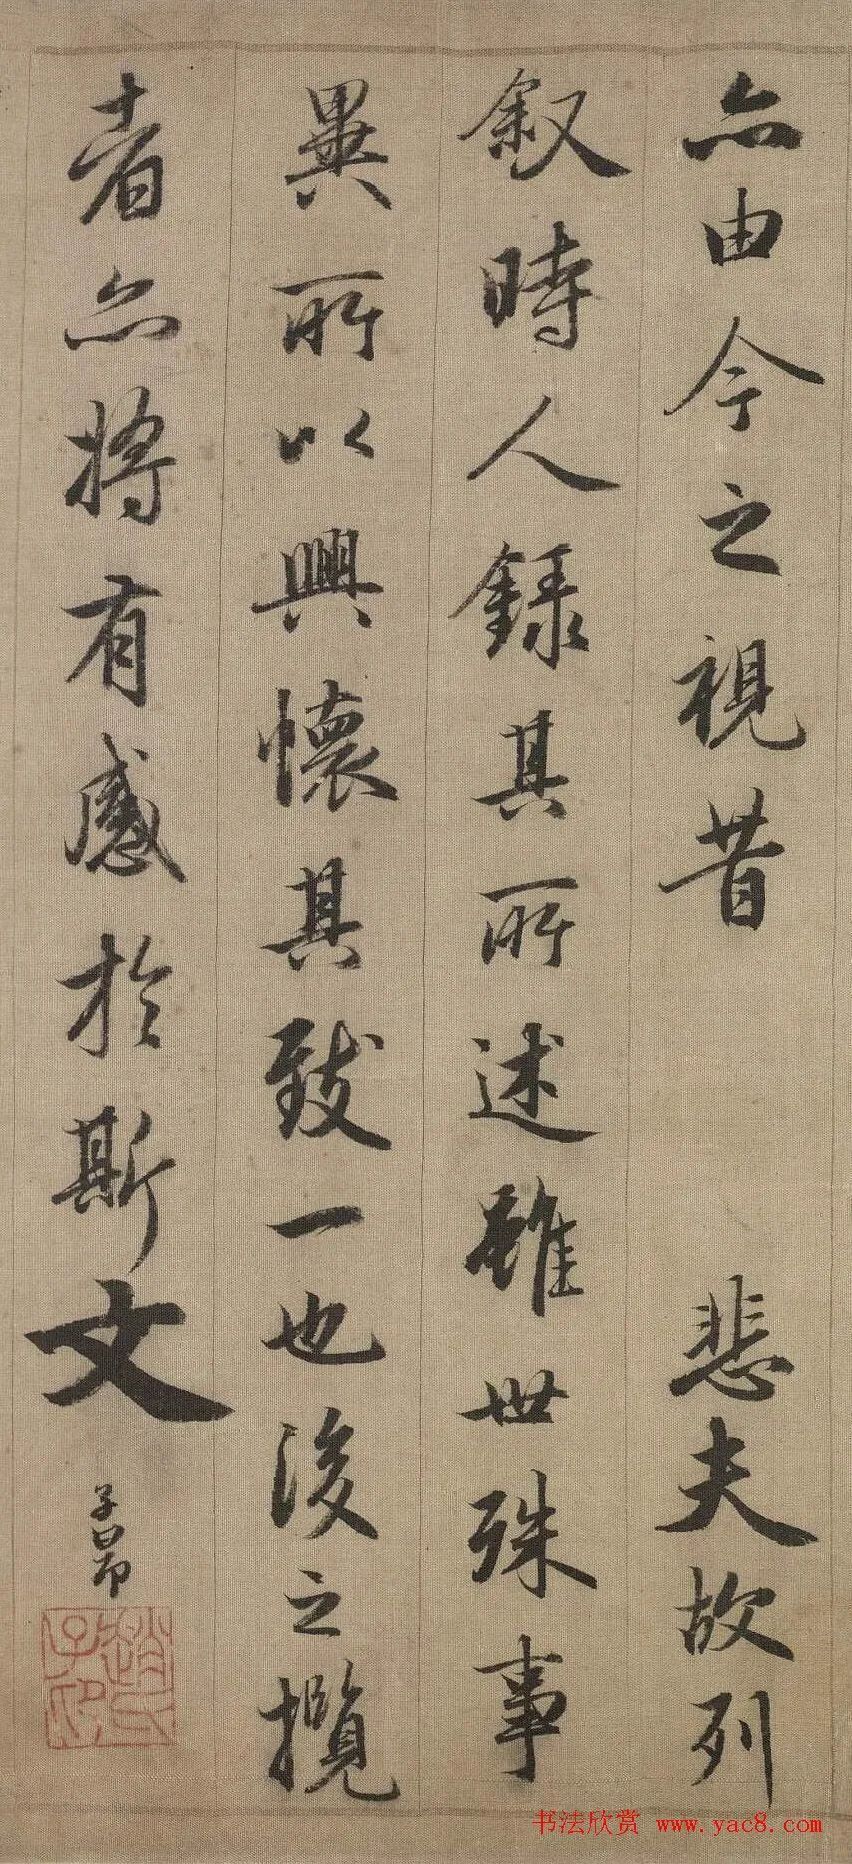 亦由今之視昔　悲夫故列
叙時人錄其所述雖世殊事
異所以興懷其致一也後之攬
者亦將有感於斯文
子昂
趙氏子昂
书法欣赏 www.yac8.com